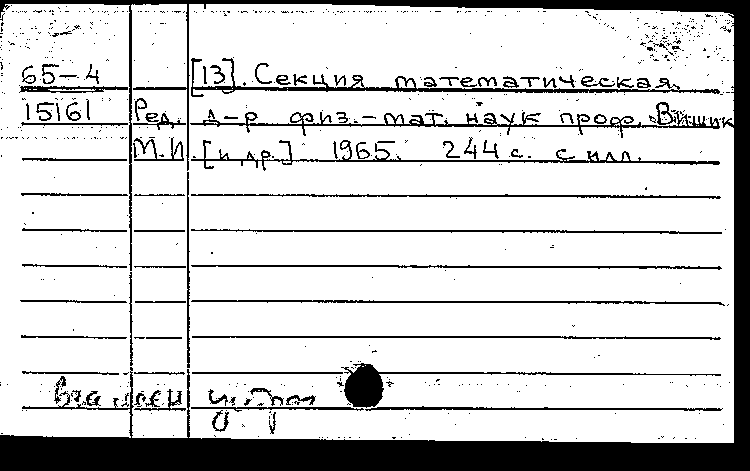 65-4 [13]. Секция математическая.
15161 Ред. д-р физ.-мат. наук проф. Вишик
М.И. [и др.] 1965. 244 с. с илл.